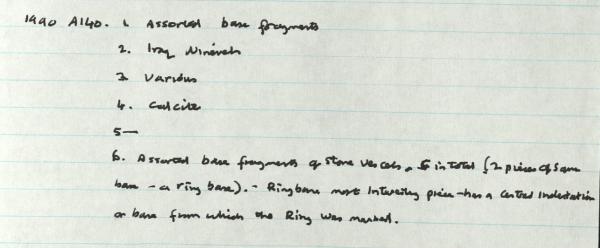 1990 A140. 1. Assorted base fragments
2. Iraq Nineveh
3 Various
4. Calcite
5—
6. Assorted base fragments of stone vessels, 5 in total (2 pieces of same
base - a ring base). - Ringbase most interesting piece - has a central indentation
on base from which the Ring was marked.